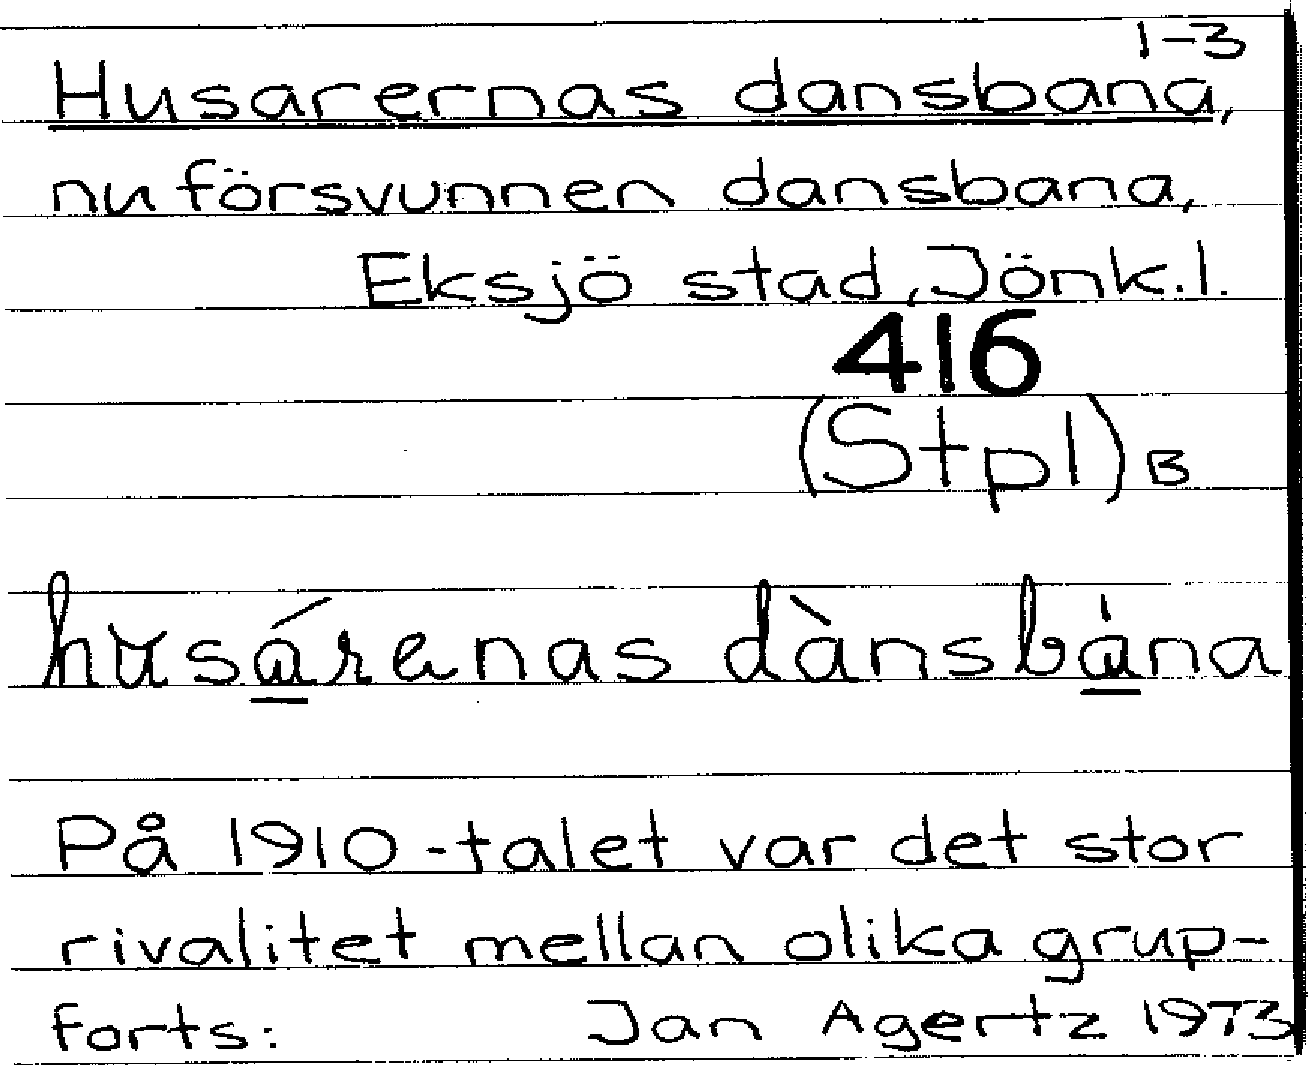 1-3
Husarernas dansbana,
nu försvunnen dansbana,
Eksjö stad, Jönk.l.
416
(Stpl) B
husárenas dànsbána
På 1910-talet var det stor
rivalitet mellan olika grup-
forts: Jan Agertz 1973